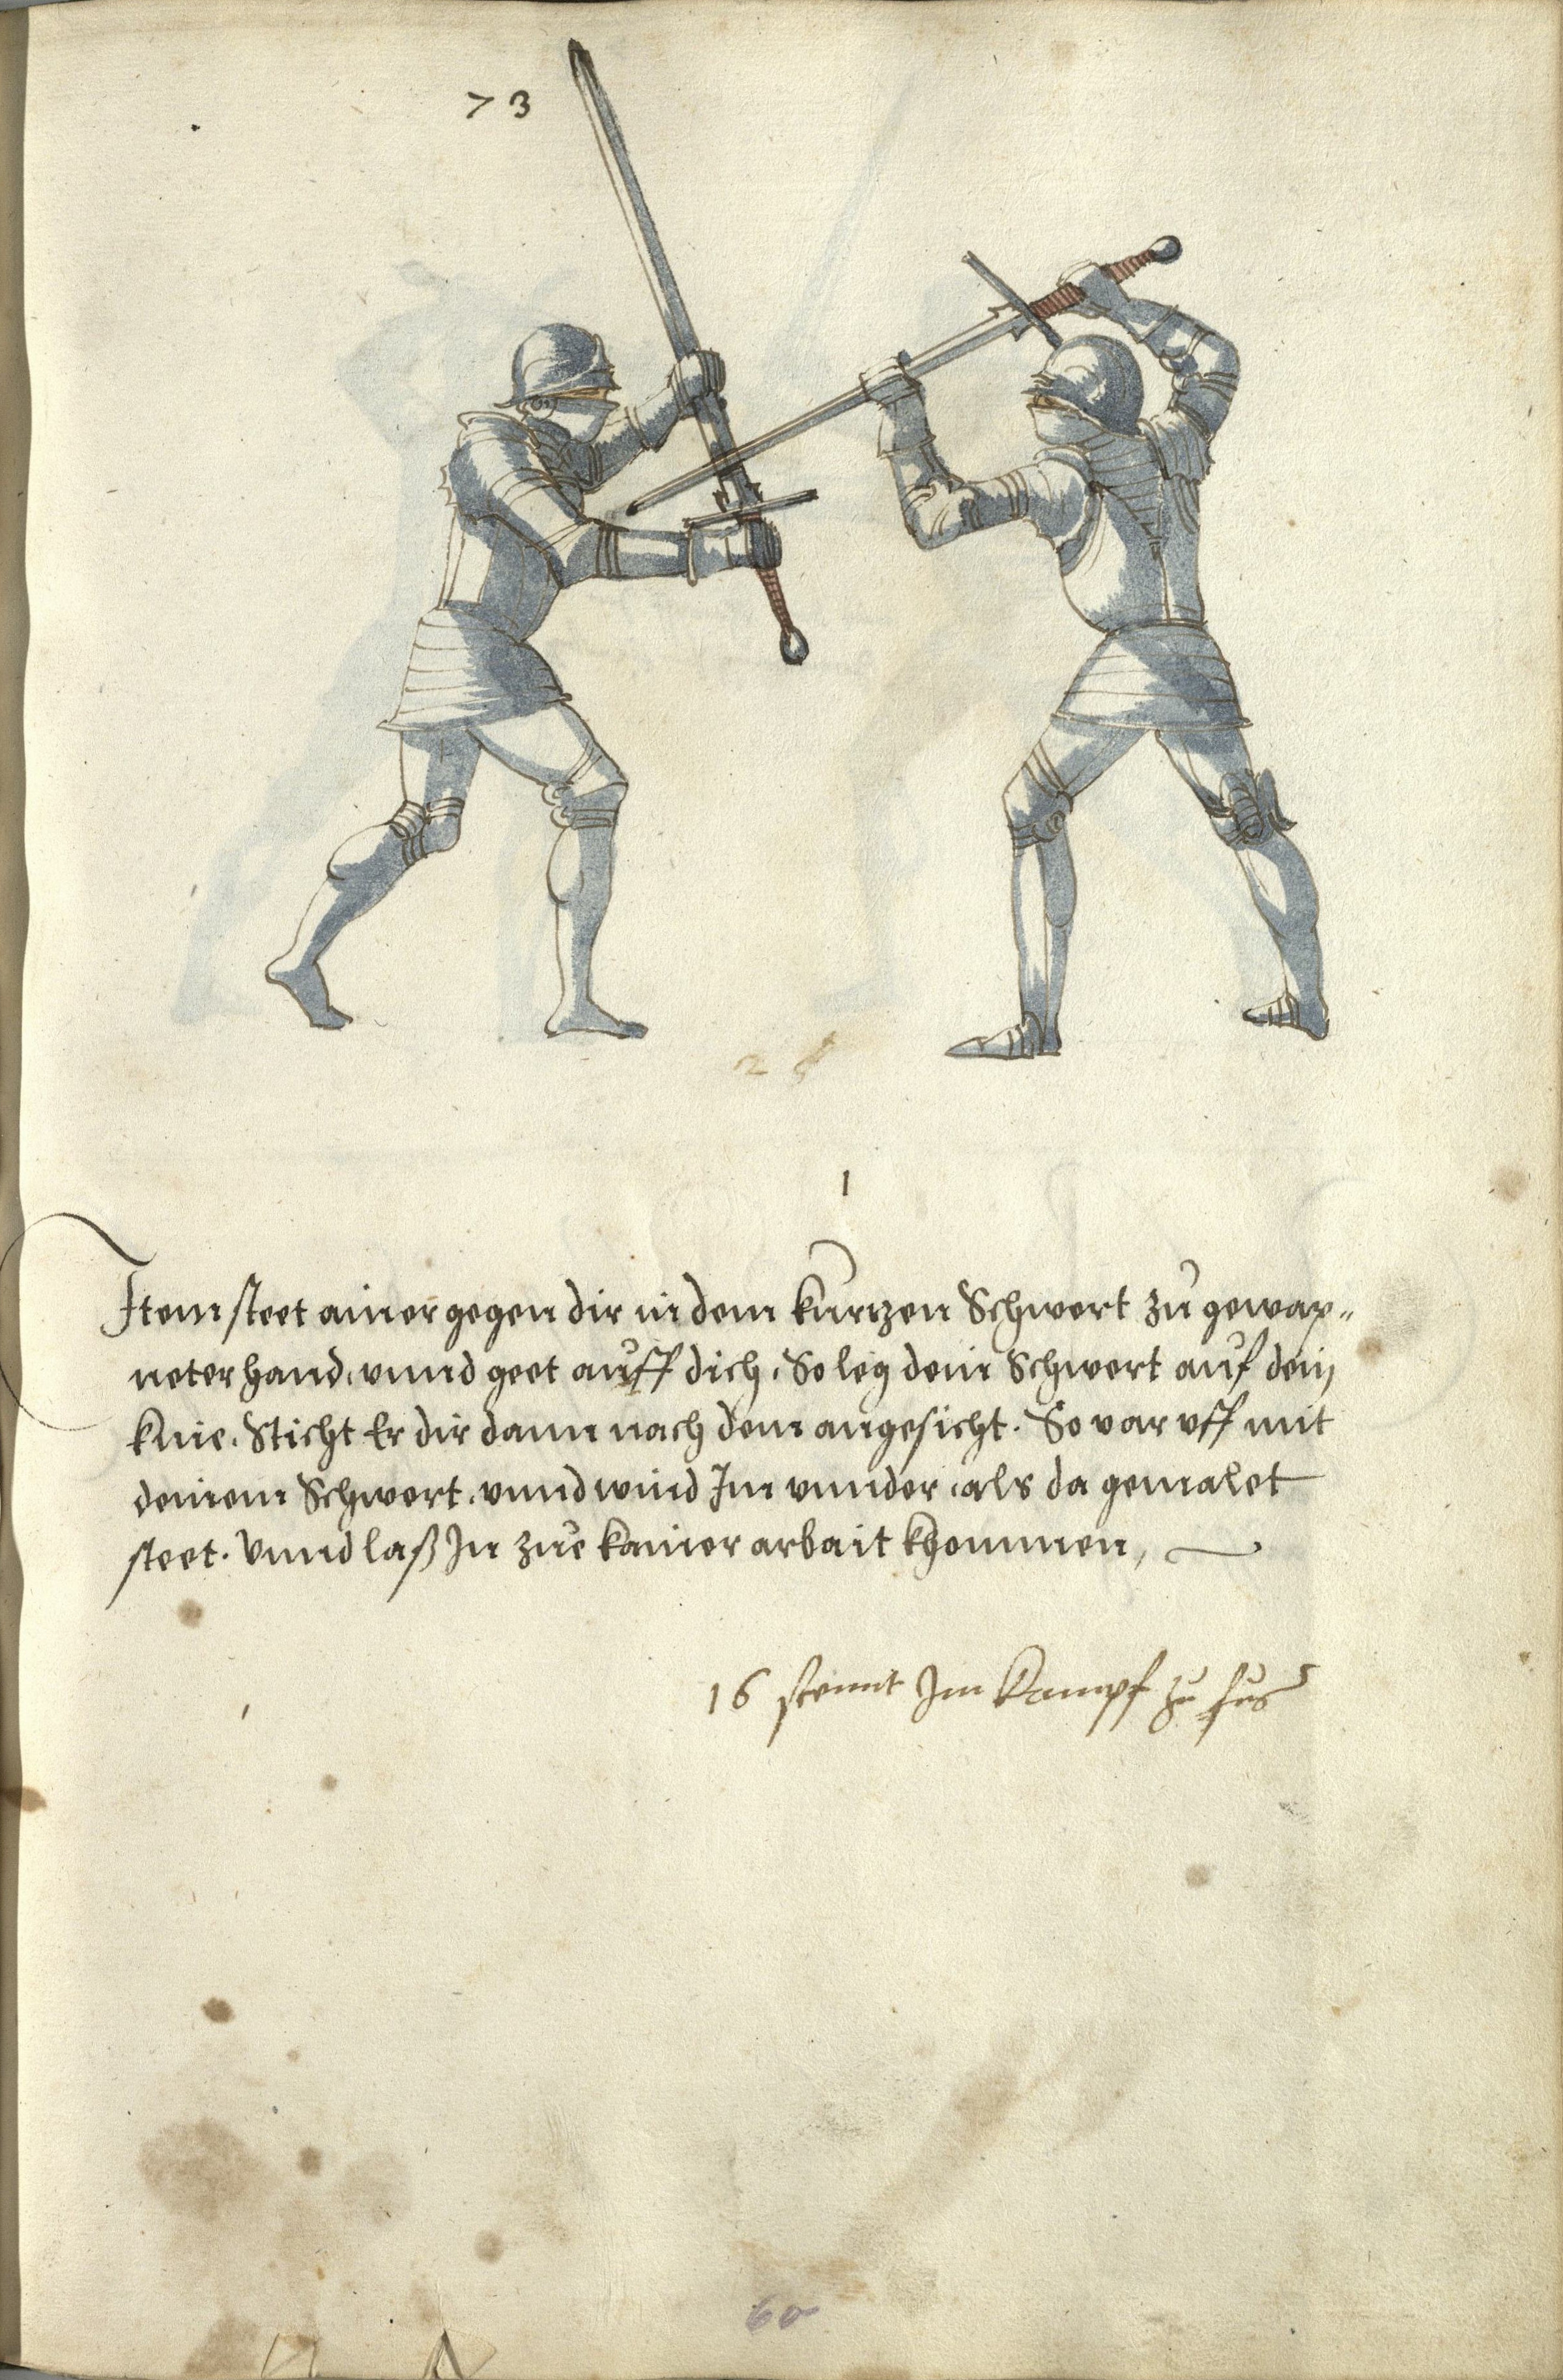 73
28
1
Item steet ainer gegen dir in dem kurtzen Schwert zu gewap„
neter hand, vnnd geet auff dich, So leg dein Schwert auf dein
knie. Sticht Er dir dann nach dem angesicht. So var vff mit
deinem Schwert, vnnd wind Im vnnder, als da gemalet
steet. Vnnd laß In zue kainer arbait khommen,
16 stennt Im Kampf zu fus
60